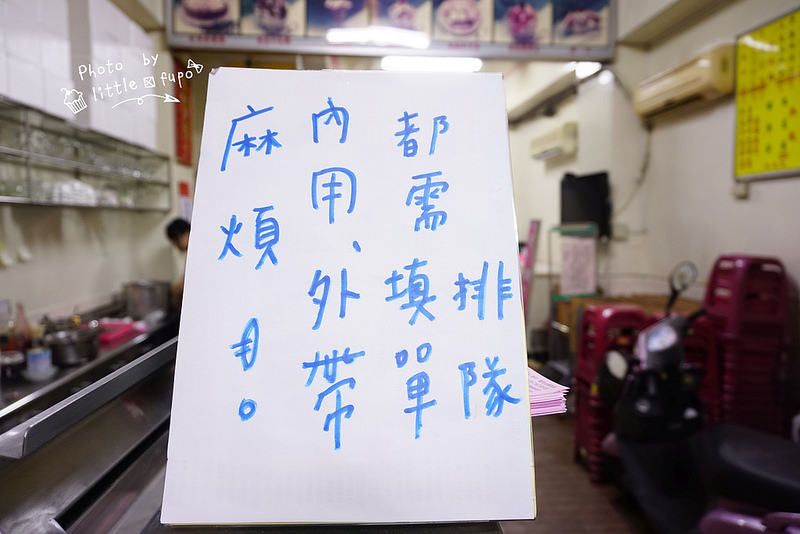 麻煩！
內用、外帶
都需填單
排隊
Photo by
little fupo